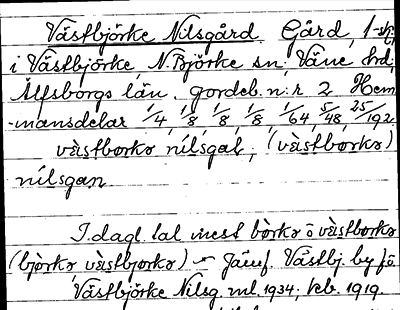 Västbjörke Nilsgård. Gård, 1 sk.
i Västbjörke, N. Björke sn; Väne hd;
Älfsborgs län. Jordeb. n:r 2 Hem
-mansdelar 1/4, 1/8, 1/8, 1/8, 1/64, 5/48, 25/192
vàstborkə nílsgaḷ, (vàstbørkə)
nílsgan
I dagl. tal mest bòrkə o vàstborkə
(bjòrkə, vàstbjorkə) – Jämf. Västbj. by fö.
Västbjörke Nilsg. ml. 1934; keb. 1919.